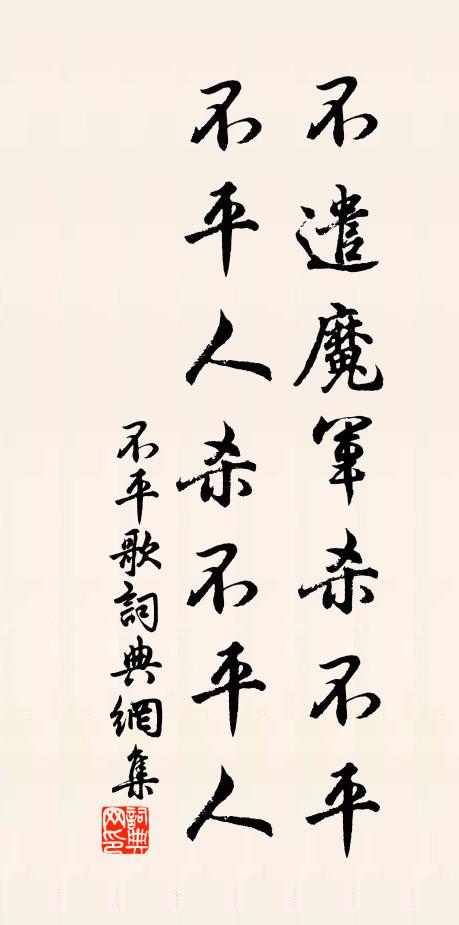 不遣魔軍杀不平
不平人杀不平人
不平歌詞典網集
詞典网印